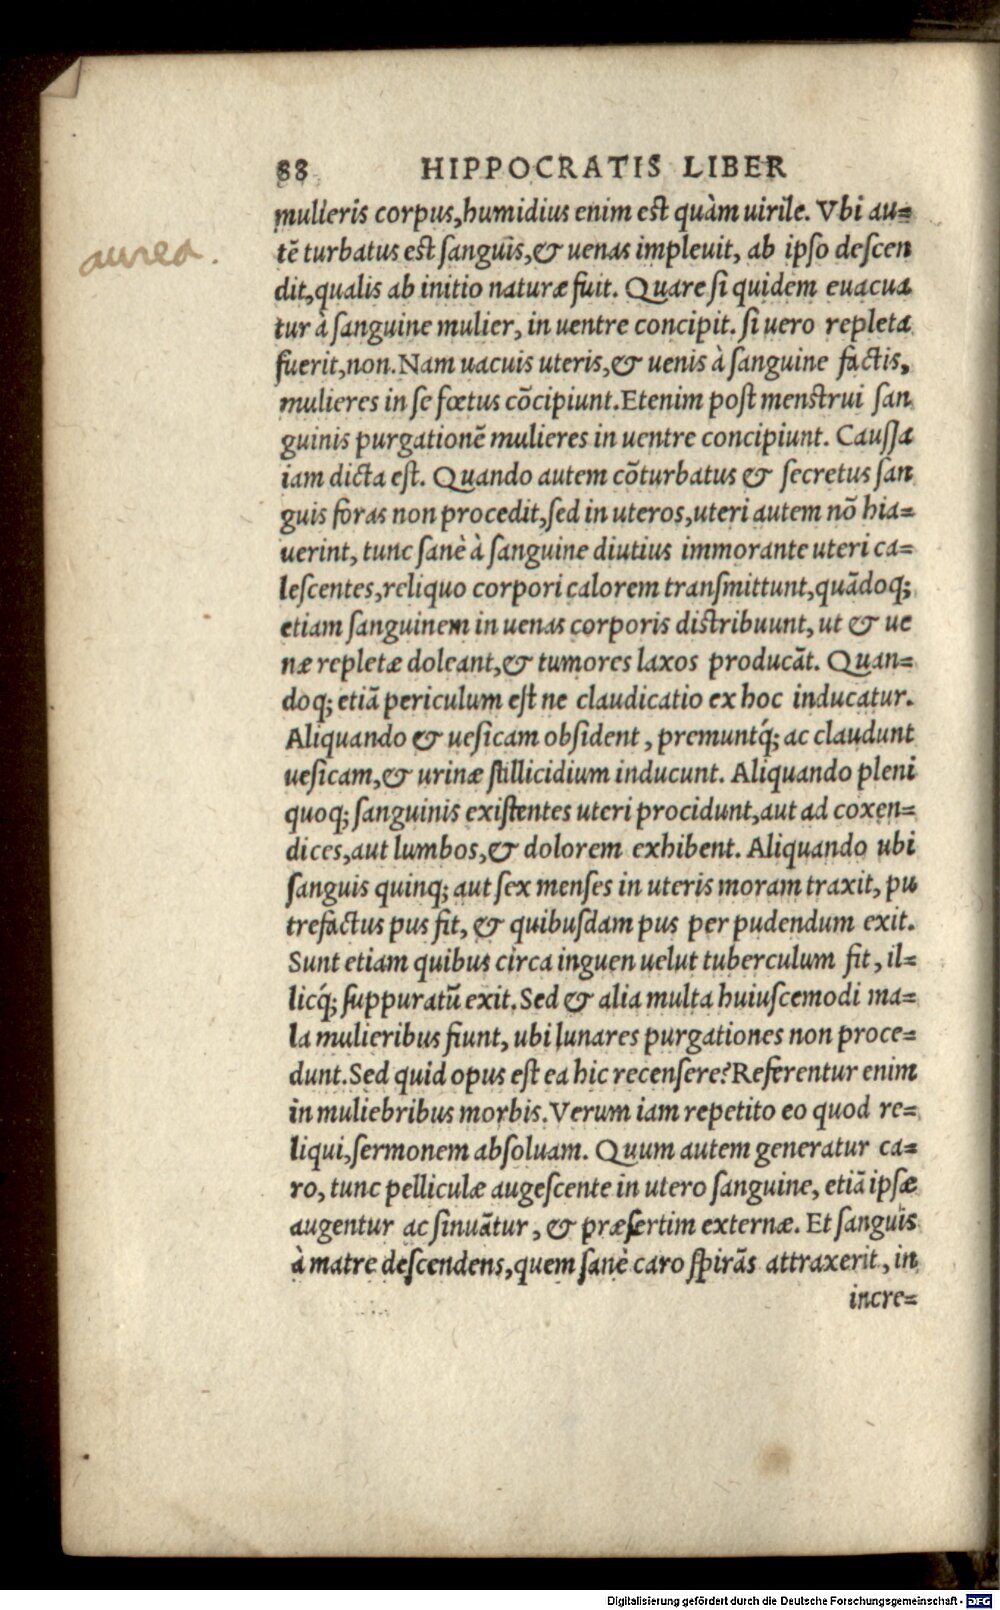 88 HIPPOCRATIS LIBER
mulieris corpus, humidius enim est quàm uirile. Vbi au=
aurea.
tē turbatus est sanguis, & uenas impleuit, ab ipso descen
dit, qualis ab initio naturæ fuit. Quare si quidem euacua
tur à sanguine mulier, in uentre concipit. si uero repleta
fuerit, non. Nam uacuis uteris, & uenis à sanguine factis,
mulieres in se fœtus cōcipiunt. Etenim post menstrui san
guinis purgationē mulieres in uentre concipiunt. Caussa
iam dicta est. Quando autem cōturbatus & secretus san
guis foras non procedit, sed in uteros, uteri autem nō hia=
uerint, tunc sanè à sanguine diutius immorante uteri ca=
lescentes, reliquo corpori calorem transmittunt, quādoq;
etiam sanguinem in uenas corporis distribuunt, ut & ue
næ repletæ doleant, & tumores laxos producāt. Quan=
doq; etiā periculum est ne claudicatio ex hoc inducatur.
Aliquando & uesicam obsident, premuntq́; ac claudunt
uesicam, & urinæ stillicidium inducunt. Aliquando pleni
quoq; sanguinis existentes uteri procidunt, aut ad coxen=
dices, aut lumbos, & dolorem exhibent. Aliquando ubi
sanguis quinq; aut sex menses in uteris moram traxit, pu
trefactus pus fit, & quibusdam pus per pudendum exit.
Sunt etiam quibus circa inguen uelut tuberculum fit, il=
licq́; suppuratū exit. Sed & alia multa huiuscemodi ma=
la mulieribus fiunt, ubi lunares purgationes non proce=
dunt. Sed quid opus est ea hic recensere? Referentur enim
in muliebribus morbis. Verum iam repetito eo quod re=
liqui, sermonem absoluam. Quum autem generatur ca=
ro, tunc pelliculæ augescente in utero sanguine, etiā ipsæ
augentur ac sinuātur, & præsertim externæ. Et sanguis
à matre descendens, quem sanè caro spirās attraxerit, in
incre=
Digitalisierung gefördert durch die Deutsche Forschungsgemeinschaft - DFG